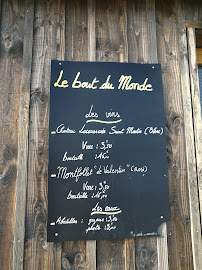 Le bout du Monde
Les vins
Château Lacaussade Saint Martin (Blanc)
Verre : 3,50
bouteille : 16,00
Montfollet "le Valentin" (rosé)
Verre : 3,50
bouteille : 16,00
Les eaux
Abatilles : gazeuse : 3,00
plate : 3,00